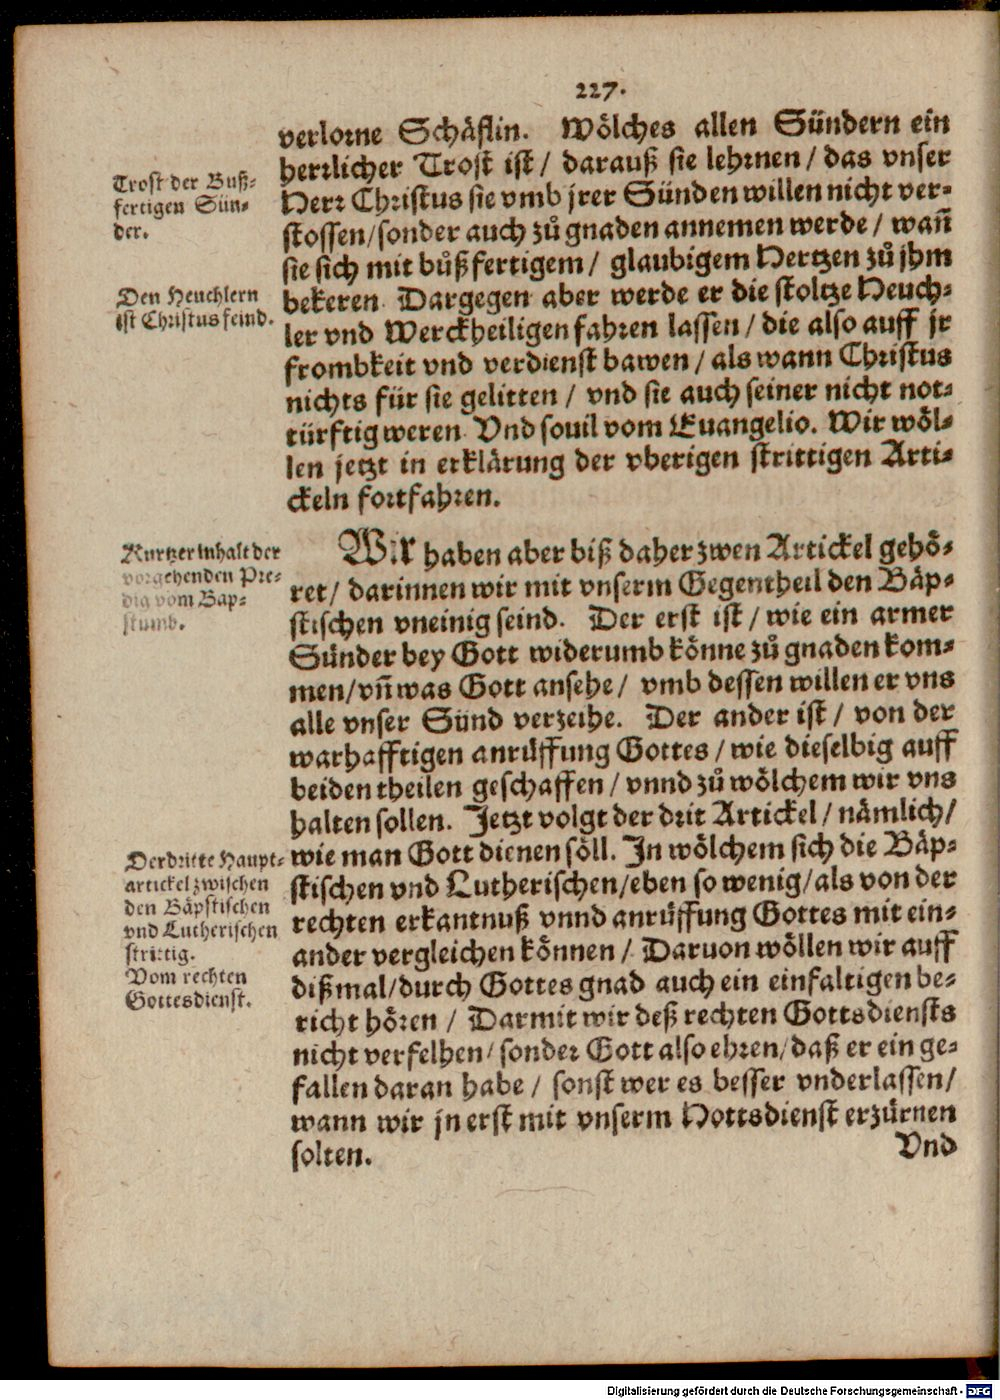 227.
verlorne Schäflin. Wölches allen Sündern ein
herrlicher Trost ist / darauß sie lehrnen / das vnser
Herr Christus sie vmb jrer Sünden willen nicht ver-
stossen / sonder auch zů gnaden annemen werde / wañ
sie sich mit bůßfertigem / glaubigem Hertzen zů jhm
bekeren. Dargegen aber werde er die stoltze Heuch-
ler vnd Werckheiligen fahren lassen / die also auff jr
frombkeit vnd verdienst bawen / als wann Christus
nichts für sie gelitten / vnd sie auch seiner nicht not-
türftig weren. Vnd souil vom Euangelio. Wir wöl-
len jetzt in erklärung der vberigen strittigen Arti-
ckeln fortfahren.
Trost der Buß-
fertigen Sün-
der.
Den Heuchlern
ist Christus feind.
Wir haben aber biß daher zwen Artickel gehö-
ret / darinnen wir mit vnserm Gegentheil den Bäp-
stischen vneinig seind. Der erst ist / wie ein armer
Sünder bey Gott widerumb könne zů gnaden kom-
men / vñ was Gott ansehe / vmb dessen willen er vns
alle vnser Sünd verzeihe. Der ander ist / von der
warhafftigen anrüffung Gottes / wie dieselbig auff
beiden theilen geschaffen / vnnd zů wölchem wir vns
halten sollen. Jetzt volgt der drit Artickel / nämlich /
wie man Gott dienen söll. In wölchem sich die Bäp-
stischen vnd Lutherischen / eben so wenig / als von der
rechten erkantnuß vnnd anrüffung Gottes mit ein-
ander vergleichen können / Daruon wöllen wir auff
dißmal / durch Gottes gnad auch ein einfaltigen be-
richt hören / Darmit wir deß rechten Gottsdiensts
nicht verfelhen / sonder Gott also ehren / daß er ein ge-
fallen daran habe / sonst wer es besser vnderlassen /
wann wir jn erst mit vnserm Gottsdienst erzürnen
solten.
Vnd
Kurtzer inhalt der
vorgehenden Pre-
dig vom Bap-
stumb.
Der dritte Haupt-
artickel zwischen
den Bäpstischen
vnd Lutherischen
strittig.
Vom rechten
Gottesdienst.
Digitalisierung gefördert durch die Deutsche Forschungsgemeinschaft - DFG